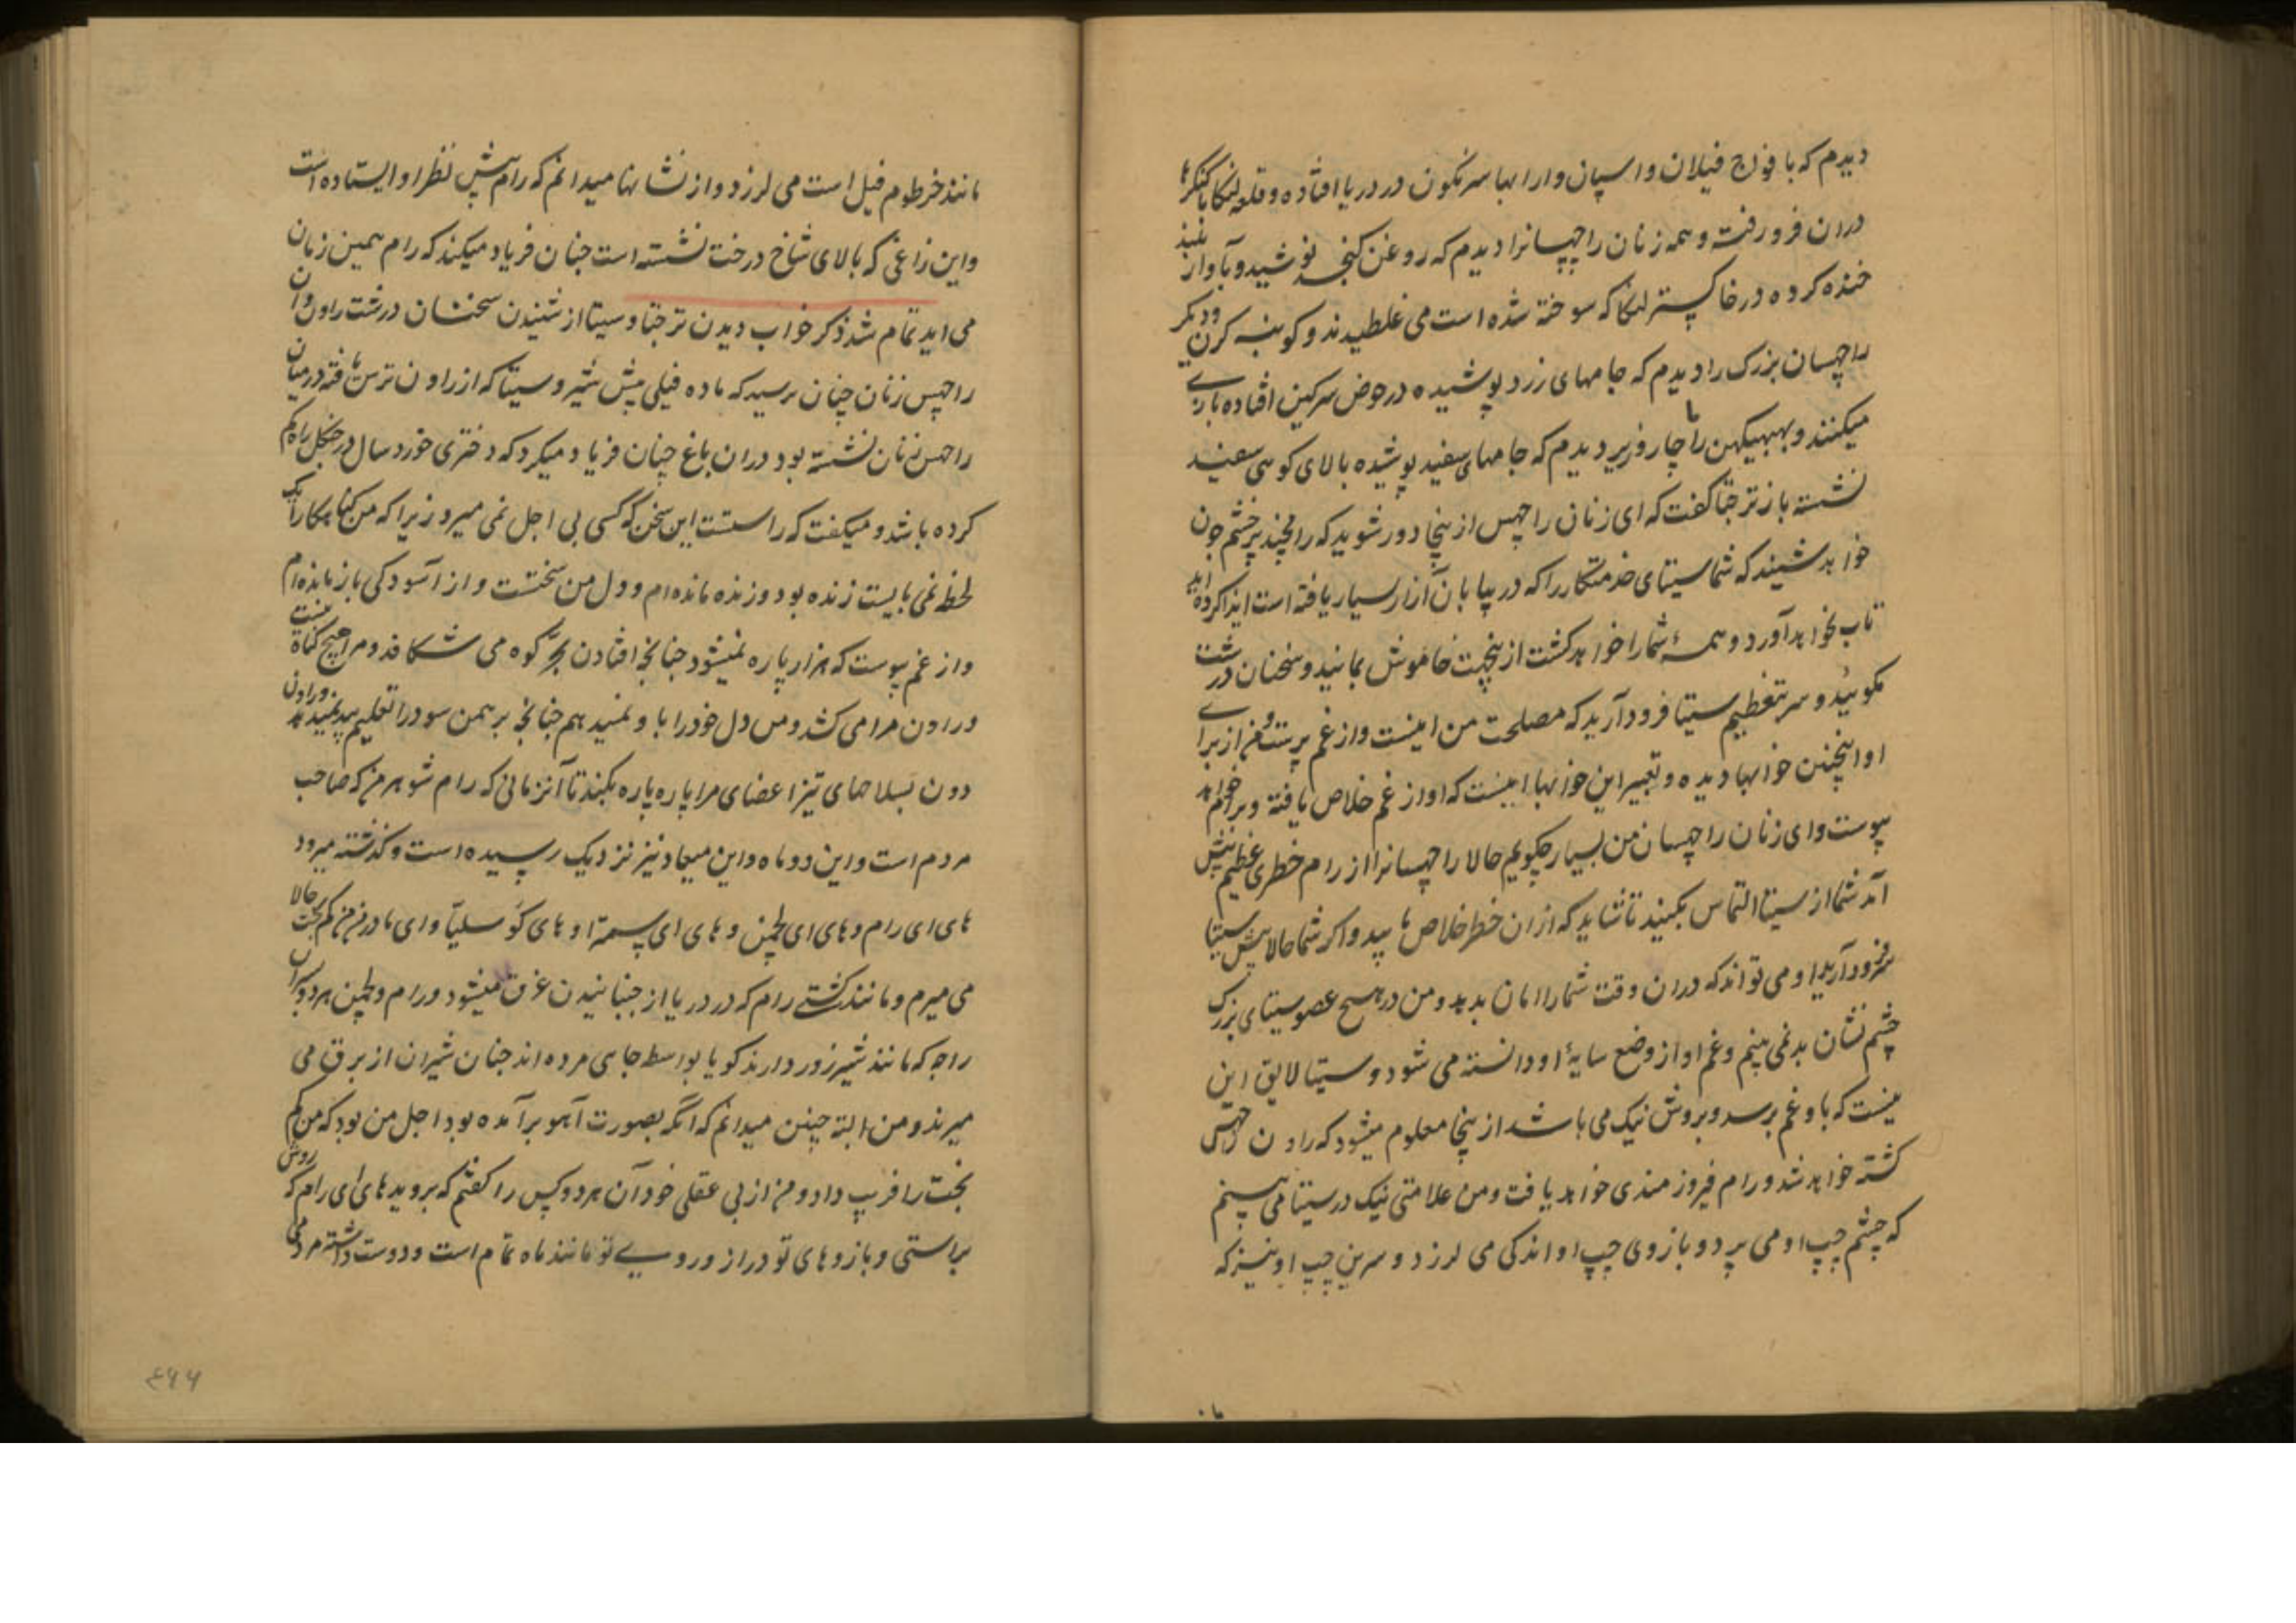 دیدم که با فوج فیلان و اسپان و ارابها سرنکون در دریا افتاده و قلعه لنکا با کنکرها
دران فرو رفته و همه زنان راچهسانرا دیدم که روغن کنجد نوشیده و بآواز بلند
خنده کرده در خاکستر لنکا که سوخته شده است می غلطیدند و کونبه کرن و دیکر
راچهسان بزرک را دیدم که جامهای زرد پوشیده در حوض سرکین افتاده بازی
میکنند و بهبهیکهن را با چار وزیر دیدم که جامهای سفید پوشیده بالای کوهی سفید
نشسته باز ترجتا کفت که ای زنان راچهس ازینجا دور شوید که رامچند پرخشم چون
خواهد شنید که شما سیتای خدمتکار را که در بیابان آزار بسیار یافته است ایذا کرده اید
تاب نخواهد آورد و همهٔ شما را خواهد کشت ازینجهت خاموش بمانید و سخنان درشت
مکوئید و سر بتعظیم سیتا فرود آرید که مصلحت من اینست و از غم برست و من از برای
او اینچنین خوابها دیده و تعبیر این خوابها اینست که او از غم خلاص یافته و برام خواهد
پیوست و ای زنان راچهسان من بسیار چکویم حالا راچهسانرا از رام خطری عظیم پیش
آمد شما از سیتا التماس بکنید تا شاید که ازان خطر خلاص یابید و اکر شما حالا پیش سیتا
سر فرود آرید او می تواند که دران وقت شما را امان بدهد و من در هیچ عضو سیتای بزرک
چشم نشان بد نمی بینم و غم او از وضع سایهٔ او دانسته می شود و سیتا لایق این
نیست که باو غم برسد و بروش نیک می باشد ازینجا معلوم میشود که راون راچهس
کشته خواهد شد و رام فیروزمندی خواهد یافت و من علامتی نیک در سیتا می بینم
که چشم چپ او می پرد و بازوی چپ او اندکی می لرزد و سرین چپ او نیز که
مانند خرطوم فیل است می لرزد و از نشانها میدانم که رام پیش نظر او ایستاده است
و این زاغی که بالای شاخ درخت نشسته است چنان فریاد میکند که رام همین زمان
می اید تمام شد ذکر خواب دیدن ترجتا و سیتا از شنیدن سخنان درشت راون و ان
راچهس زنان چنان ترسید که ماده فیلی پیش شیر و سیتا که از راون ترس یافته در میان
راچهس زنان نشسته بود دران باغ چنان فریاد میکرد که دختری خورد سال در جنکل راه کم
کرده باشد و میکفت که راستست این سخن که کسی بی اجل نمی میرد زیرا که من کناهکار را یک
لحظه نمی بایست زنده بود و زنده مانده ام و دل من سختست و از آسودکی باز مانده ام
و از غم پرست که هزار پاره نمیشود چنانچه افتادن بجر کوه می شکافد و مرا هیچ کناه نیست
و راون مرا می کشد و من دل خود را باو نمیدهم چنانچه برهمن سودر را تعلیم بید نمیدهد و راون
دون بسلاحهای تیز اعضای مرا پاره پاره بکند تا آنزمانی که رام شوهر من که صاحب
مردم است و این دو ماه و این میعاد نیز نزدیک رسیده است و کذشته میرود
های ای رام و های ای لچمن و های ای سمترا و های کوسلیا و ای مادر من من کم بخت حالا
می میرم و مانند کشتی رام که در دریا از جنبانیدن غرق میشود و رام و لچمن هر دو پسران
راجه که مانند شیر زور دارند کویا بواسطه جاهی مرده اند چنان شیران از برق می
میرند و من البته چنین میدانم که انکه بصورت آهو برآمده بود اجل من بود که من کم
بخت را فریب داد و من از بی عقلی خود آن هر دو کس را کفتم که بروید های ای رام که روش
براستی و بازوهای تو دراز و روی تو مانند ماه تمام است و دوست داشته مردمی
ما
۴۶۶